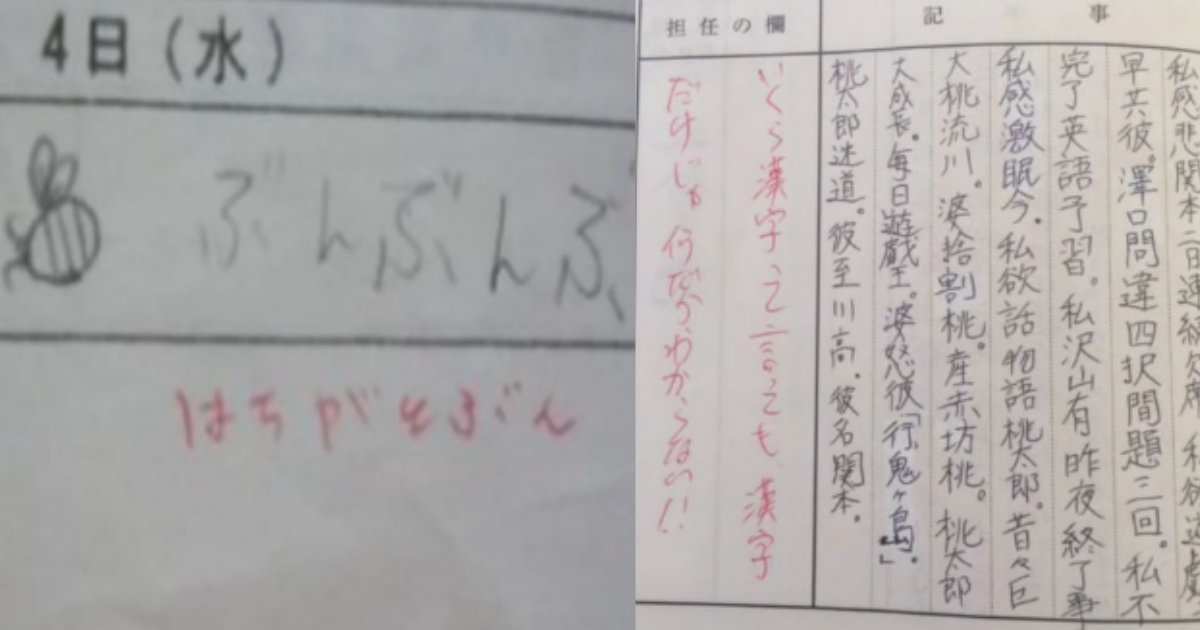 4日(水)
ぶんぶんぶ
はちがとぶん
担任の欄
記事
私感悲関本二日連続欠席
早共彼。澤口問違四択問題三回。私不
完了英語予習。私沢山有昨夜終了事
私感激眠今。私欲話物語桃太郎。昔々巨
大桃流川。婆捨割桃。産赤坊桃。桃太郎
大成長。毎日遊戯王。婆怒彼「行鬼ヶ島」。
桃太郎迷道。彼至川高。彼名関本。
いくら漢字って言っても漢字
だけじゃ何だかわからない!!